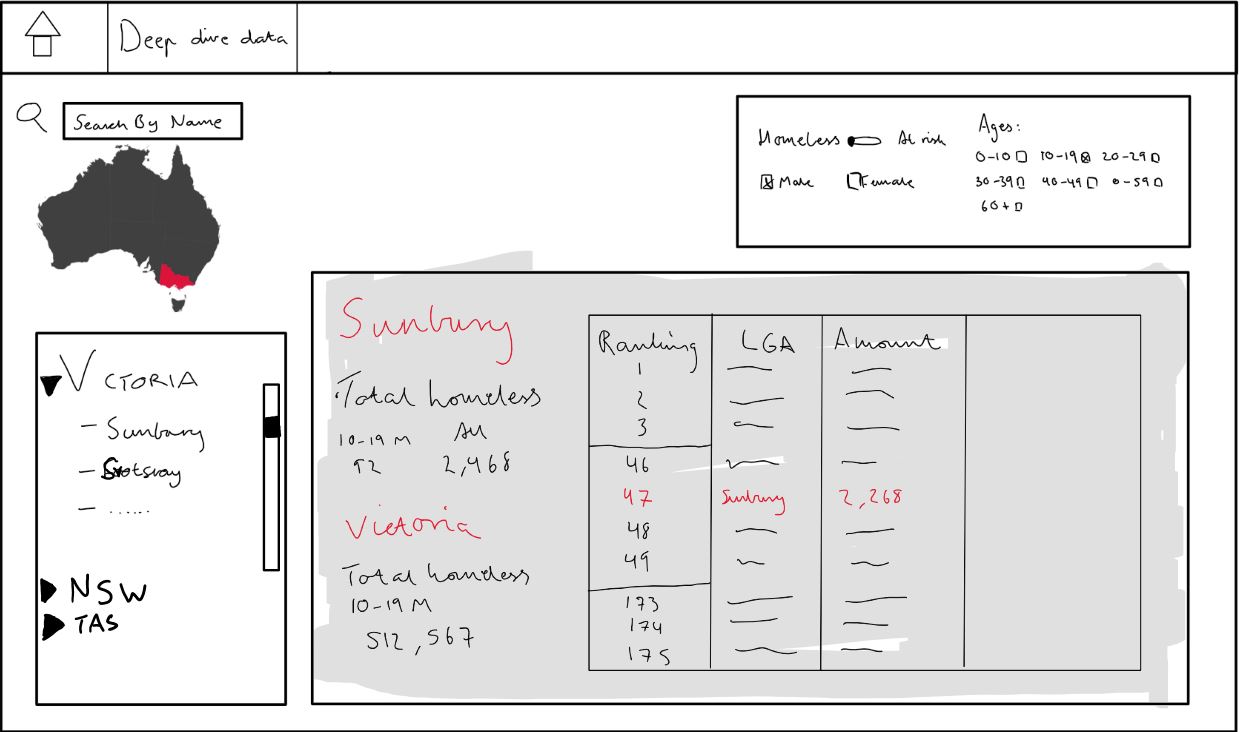 Deep dive data
Search By Name
Homeless At risk
Male Female
Ages:
0-10 10-19 20-29
30-39 40-49 0-59
60+
VCTORIA
- Sunbury
-
- ......
NSW
TAS
Sunbury
Total homeless
10-19 M All
92 2,468
Victoria
Total homeless
10-19 M
512,567
Ranking LGA Amount
1
2
3
46
47 Sunbury 2,268
48
49
173
174
175